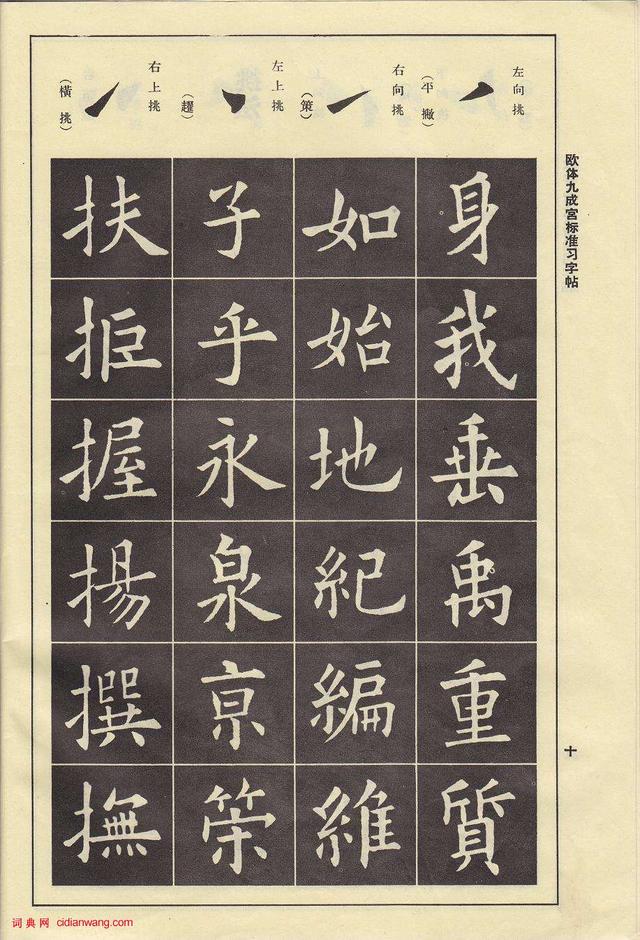 欧体九成宫标准习字帖
十
左向挑
(平撇)
身我垂禹重質
右向挑
(策)
如始地紀編維
左上挑
(趯)
子乎永泉亰策
右上挑
(橫挑)
扶拒握揚撰撫
词典网 cidianwang.com